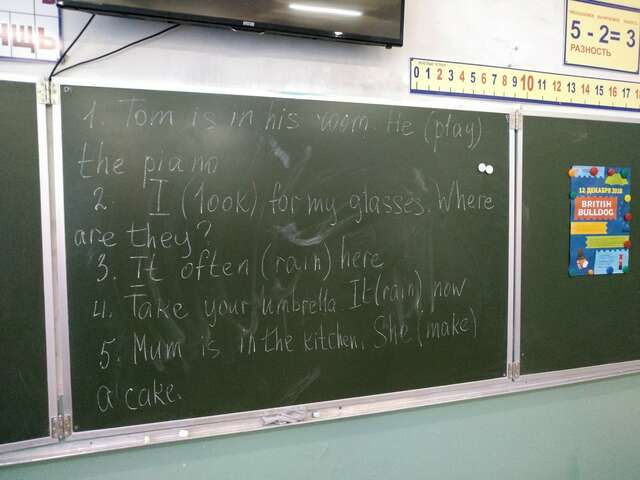 1. Tom is in his room. He (play)
the piano
2. I (look) for my glasses. Where
are they?
3. It often (rain) here
4. Take your umbrella. It (rain) now
5. Mum is in the kitchen. She (make)
a cake.
5 - 2 = 3
РАЗНОСТЬ
0 1 2 3 4 5 6 7 8 9 10 11 12 13 14 15 16 17
12 ДЕКАБРЯ 2018
BRITISH
BULLDOG